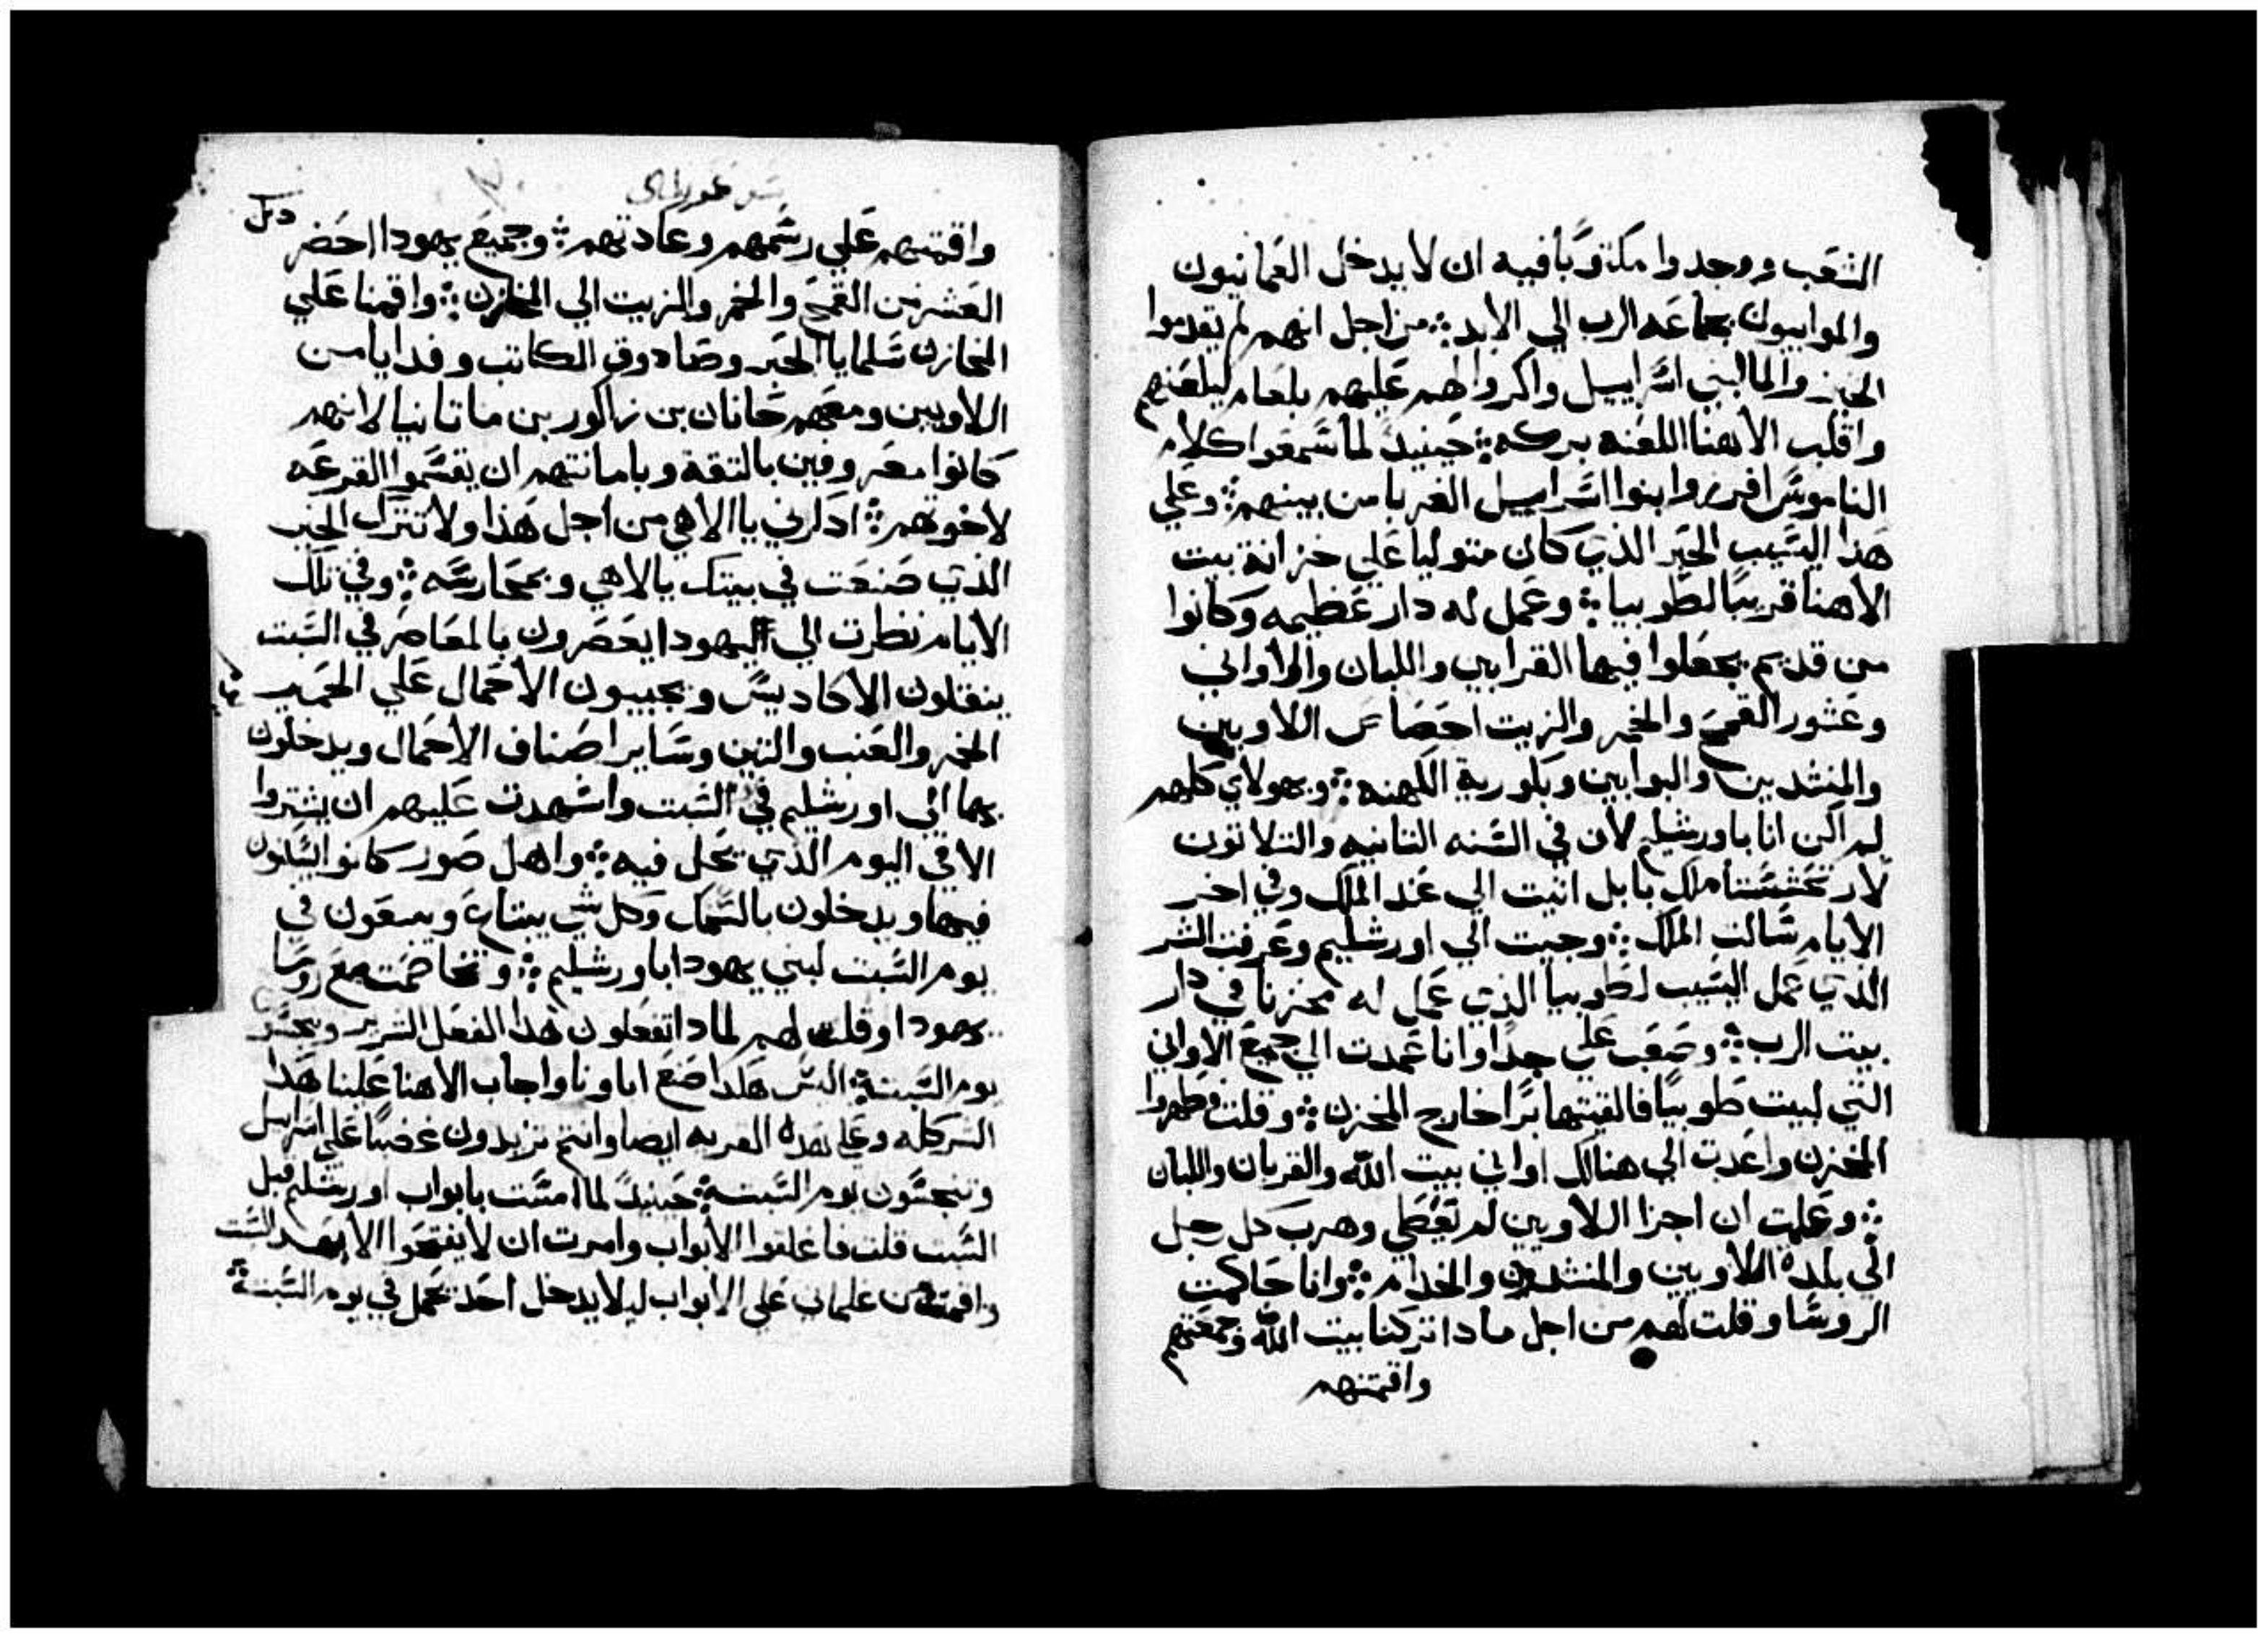 الشعب ووجدوا مكتوبًا فيه ان لا يدخل العمانيون
والموابيون بجماعه الرب الي الابد؞ من اجل انهم لم يقدموا
الخبز والما لبني اسراييل واكروا لهم عليهم بلعام ليلعنهم
واقلب الاهنا اللعنه بركه؞ حينيدً لما سمعوا كلام
الناموس افرزوا بنوا اسراييل الغربا من بينهم؞ وعلي
هذا اليسيب الحبر الذي كان متوليا علي خزانة بيت
الاهنا قريبًا لطوبيا؞ وعمل له دار عظيمه وكانوا
من قديم يجعلوا فيها القرابين واللبان والاواني
وعشور القمح والخمر والزيت اللاويين
والمنشدين والبوابين وبكورية الكهنه؞ وبهولاي كلهم
لم اكن انا باورشليم لان في السنه التانيه والتلاتون
لارتحششتا ملك بابل اتيت الي عند الملك وفي اخر
الايام سالت الملك؞ وجيت الي اورشليم وعرفت الشر
الذي عمل اليسيب لطوبيا الذي عمل له مخزنا في دار
بيت الرب؞ وصعب علي جدا وانا عمدت الي جميع الاواني
التي لبيت طوبيا فالقيتها برا خارج المخزن؞ وقلت فطهروا
المخزن واعدت الي هنالك اواني بيت الله والقربان واللبان
؞ وعلمت ان اجزا اللاويين لم تعطي وهرب كل رجل
الي بلده اللاويين والمنشدون والخدام؞ وانا حاكمت
الروسا وقلت لهم من اجل مادا تركنا بيت الله وجمعتهم
واقمتهم
واقمتهم علي رسمهم وعادتهم؞ وجميع يهودا احضر
العشر من القمح والخمر والزيت الي المخازن؞ واقمنا علي
المخازن سلمايا الحبر وصادوق الكاتب وفدايا من
اللاويين ومعهم حانان بن زاكور بن ماتانيا لانهم
كانوا معروفين بالتقة وبامانتهم ان يقسموا القرعه
لاخوتهم؞ ادكرني يا الاهي من اجل هذا ولا تترك الخير
الذي صنعت في بيتك يالاهي وبمحارسه؞ وفي تلك
الايام نظرت الي اليهودا يعصرون بالمعاصر في السبت
ينقلون الاكاديس ويجيبون الاحمال علي الحمير
الخمر والعنب والتين وساير اصناف الاحمال ويدخلون
بها الي اورشليم في السبت واشهدت عليهم ان يشتروا
الا في اليوم الذي يحل فيه؞ واهل صور كانوا
فيها ويدخلون بالسمك وكل شي يبتاع ويبيعون في
يوم السبت لبني يهودا باورشليم؞ وتخاصمت مع روسا
يهودا وقلت لهم لمادا تفعلون هذا الفعل الشرير
يوم السبت؞ اليس هكدا صنع اباونا واجاب الاهنا علينا هدا
الشر كله وعلي هده القريه ايضا وانتم تزيدون غضبًا علي اسراييل
وتنجسون يوم السبت؞ حينيدً لما امست بابواب اورشليم قبل
السبت قلت فاغلقوا الابواب وامرت ان لا يفتحوا الا بعد السبت
واقمت من غلماني علي الابواب ليلا يدخل احد بحمل في يوم السبت؞